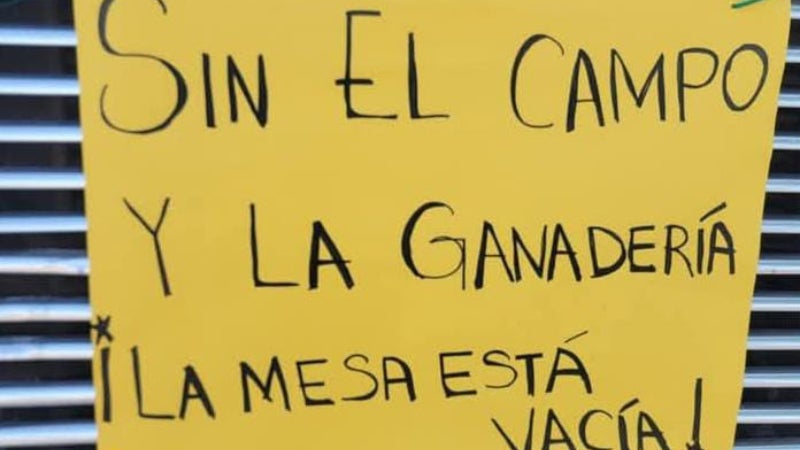 SIN EL CAMPO
Y LA GANADERÍA
¡LA MESA ESTÁ
VACÍA!